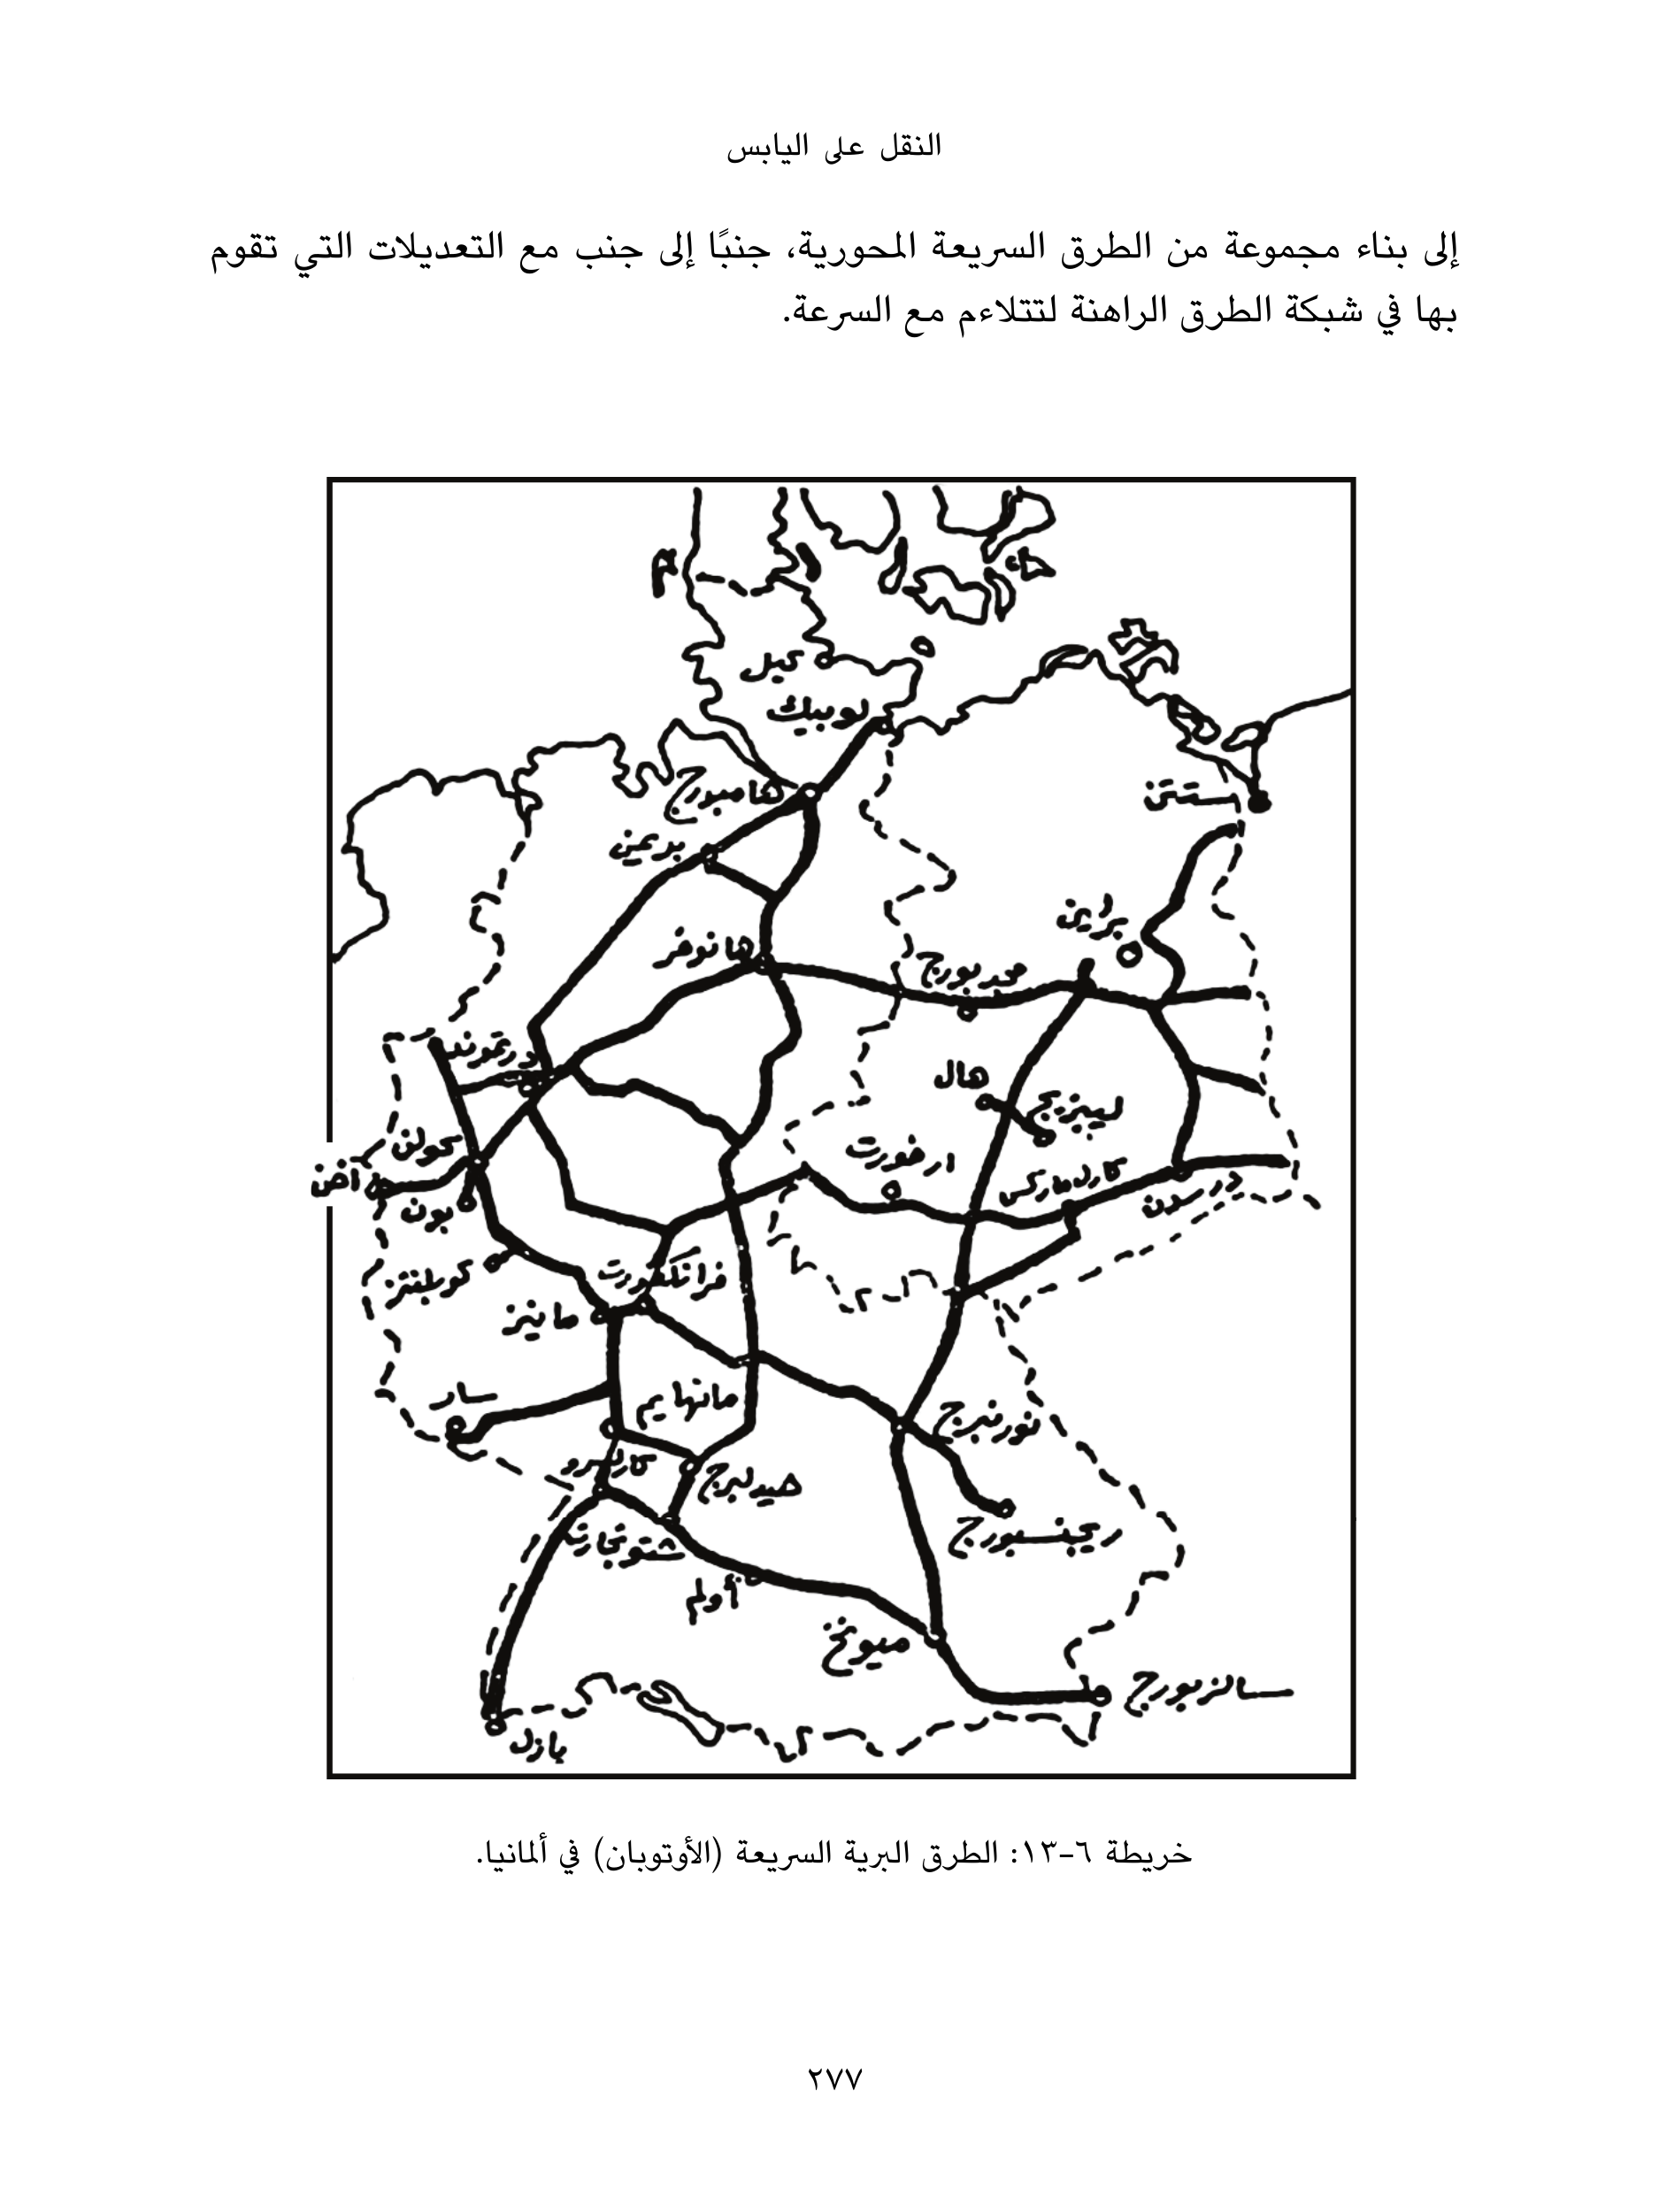 النقل على اليابس
إلى بناء مجموعة من الطرق السريعة المحورية، جنبًا إلى جنب مع التعديلات التي تقوم
بها في شبكة الطرق الراهنة لتتلاءم مع السرعة.
كيل
لوبيك
هامبورج
ستتن
بريمن
برلين
هانوفر
مجدبورج
درتموند
هال
ليبزج
كولن
ارفورت
اخن
كارل ماركس
درسدن
بون
فرانكفورت
كوبلنتز
ماينز
سار
مانهايم
نورنبرج
كارلسرو
هيدلبرج
ريجنسبورج
شتوتجارت
أولم
ميونخ
سالزبورج
بازل
خريطة ٦-١٣: الطرق البرية السريعة (الأوتوبان) في ألمانيا.
٢٧٧